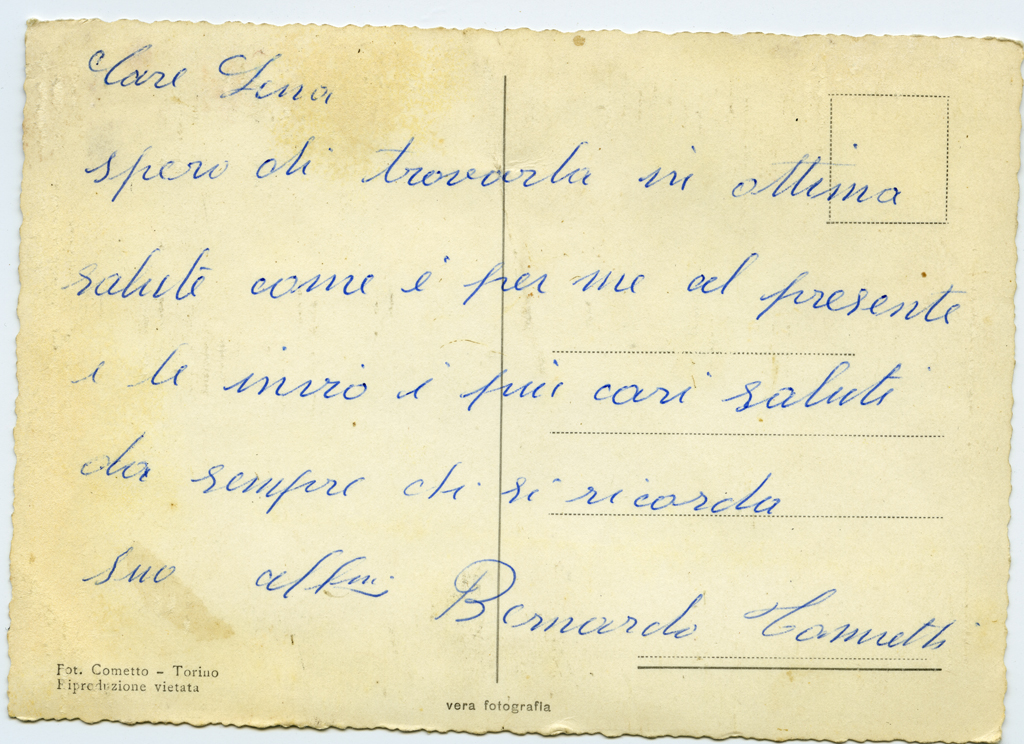 Care Lina
spero di trovarla in ottima
salute come è per me al presente
e le invio i più cari saluti
da sempre chi si ricorda
suo aff.mo Bernardo
Fot. Cometto - Torino
Riproduzione vietata
vera fotografia